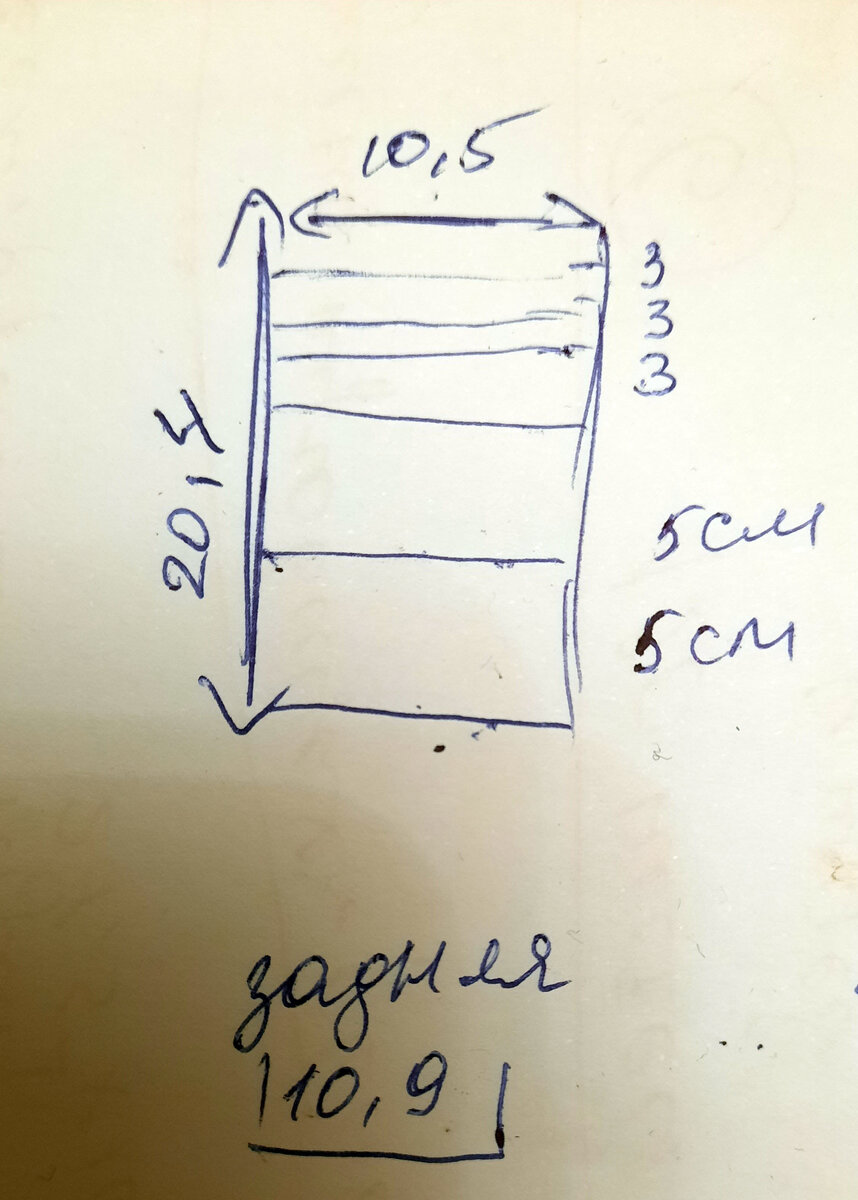 10,5
3
3
3
20,4
5см
5см
задняя
10,9